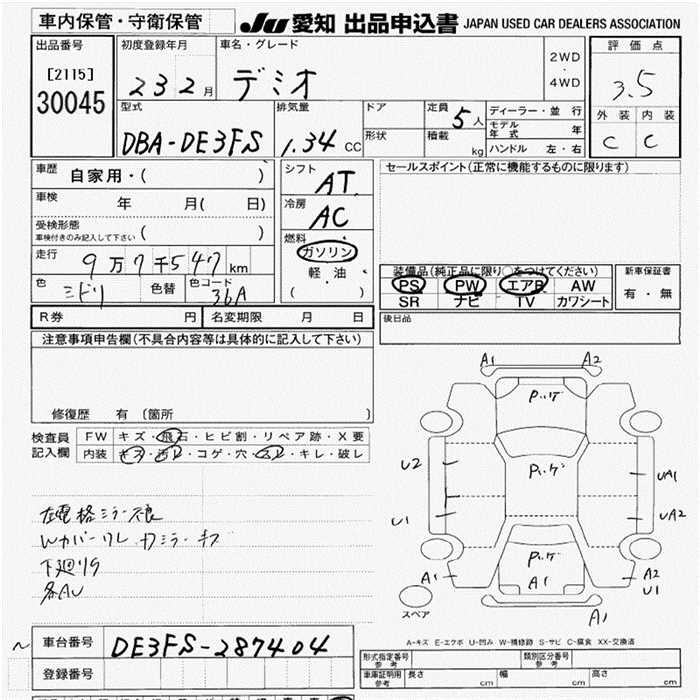 車内保管・守衛保管 JU 愛知 出品申込書 JAPAN USED CAR DEALERS ASSOCIATION
出品番号 初度登録年月 車名・グレード 2WD・4WD 評価点
[2115] 23 2 月 デミオ 3.5
30045
型式 排気量 ドア 定員 5人 ディーラー・並行 外装 内装
DBA-DE3FS 1.34 CC 形状 積載 kg モデル年式 年 C C
ハンドル 左・右
車歴 自家用・( ) シフト AT セールスポイント(正常に機能するものに限ります)
車検 年 月( 日) 冷房 AC
受検形態
車検付きのみ記入して下さい ( )
燃料 ガソリン
走行 9万7千547 km 軽・油
( )
装備品(純正品に限り○をつけてください) 新車保証書
色 ミドリ 色替 色コード 36A
PS PW エアB AW 有・無
SR ナビ TV カワシート
R券 円 名変期限 月 日 後日品
注意事項申告欄(不具合内容等は具体的に記入して下さい)
修復歴 有 〔箇所 〕
検査員 FW キズ・飛石・ヒビ割・リペア跡・X要
記入欄 内装 キズ・汚レ・コゲ・穴・スレ・キレ・破レ
左電格ミラー不良
下廻りサ
各AU
A1 A2
U2 UA1
U1 UA2
A1 A1 A2
U1
A1
スペア
A-キズ E-エクボ U-凹み W-補修跡 S-サビ C-腐食 XX-交換済
車台番号 DE3FS-287404
登録番号
形式指定番号 参考 類別区分番号 参考
車庫証明用 参考 長さ cm 幅 cm 高さ cm